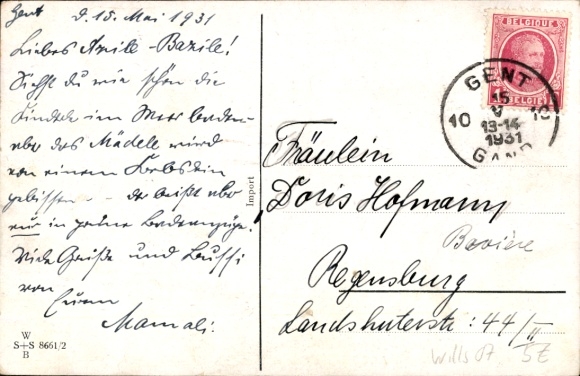 Gent d. 15. Mai 1931
Liebes Azile-Bazile!
Siehst du wie schön die
Kinder im Meer baden
aber das Mädele wird
von einem Krebslein
gebissen - der beißt aber
nur in grüne Badeanzüge.
Viele Grüße und Bussi
von
Eurem
Mamali.
W
S+S 8661/2
B
Import
BELGIQUE
BELGIE
GENT
15
V
10 10
13-14
1931
GAND
Fräulein
Doris Hofmann
Bavière
Regensburg
Landshuterstr: 44/II